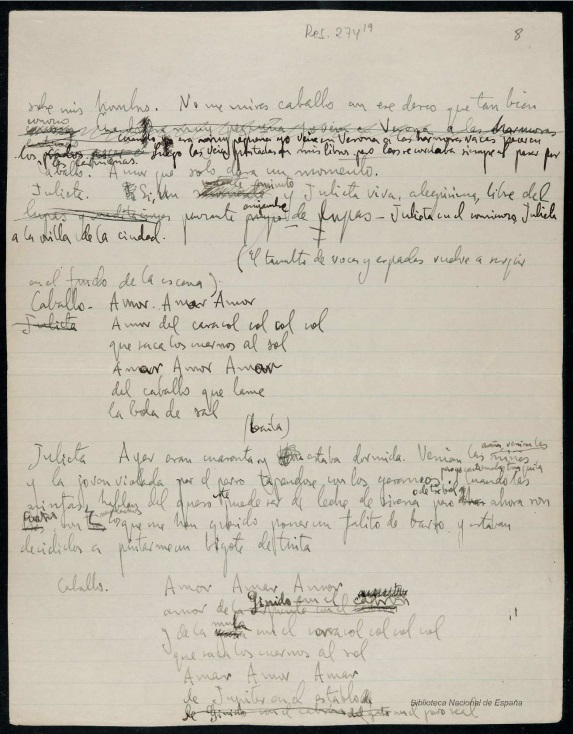 Res. 274 19
8
sobre mis hombros. No me mires caballo con ese deseo que tan bien
conozco
Cuando era muy pequeña yo veía en Verona a las hermosas vacas pacer en
los Luego las veía pintadas en mis libros pero las recordaba siempre al pasar por
las carnicerías.
Caballo. Amor que solo dura un momento.
Julieta. Sí, un minuto y Julieta viva, alegrísima, libre del
punzante enjambre de lupas – Julieta en el comienzo, Julieta
a la orilla de la ciudad.
(El tumulto de voces y espadas vuelve a surgir
en el fondo de la escena).
Caballo – Amor. Amar Amor
Julieta Amor del caracol col col col
que saca los cuernos al sol
Amar Amor Amar
del caballo que lame
la bola de sal
(baila)
Julieta Ayer eran cuarenta y estaba dormida. Venían las arañas, venían las niñas
y la joven violada por el perro tapándose con los geraneos,
ahora son
que me han querido poner un falito de barro y estaban
decididos a pintarme un bigote de tinta
Caballo. Amor Amar Amor
amor de Ginido con el cabrón
y de la mula con el caracol col col col
que saca los cuernos al sol
Amar Amor Amar
de Jupiter en el establo
Biblioteca Nacional de España